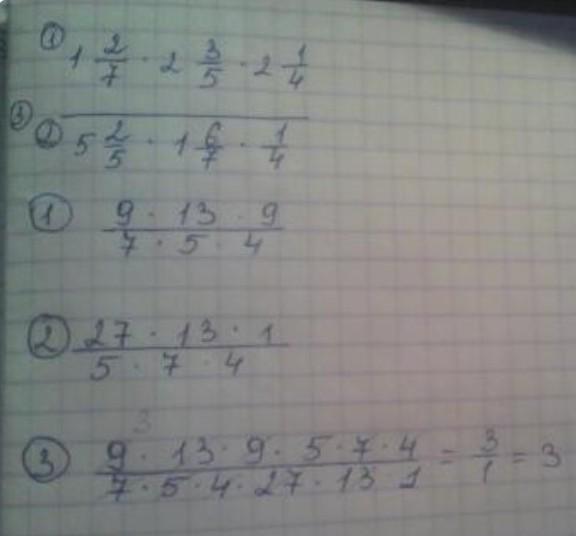 ① 1 2/7 · 2 3/5 · 2 1/4
③
② 5 2/5 · 1 6/7 · 1/4
① 9 · 13 · 9
7 · 5 · 4
② 27 · 13 · 1
5 · 7 · 4
3
③ 9 · 13 · 9 · 5 · 7 · 4 = 3/1 = 3
7 · 5 · 4 · 27 · 13 1